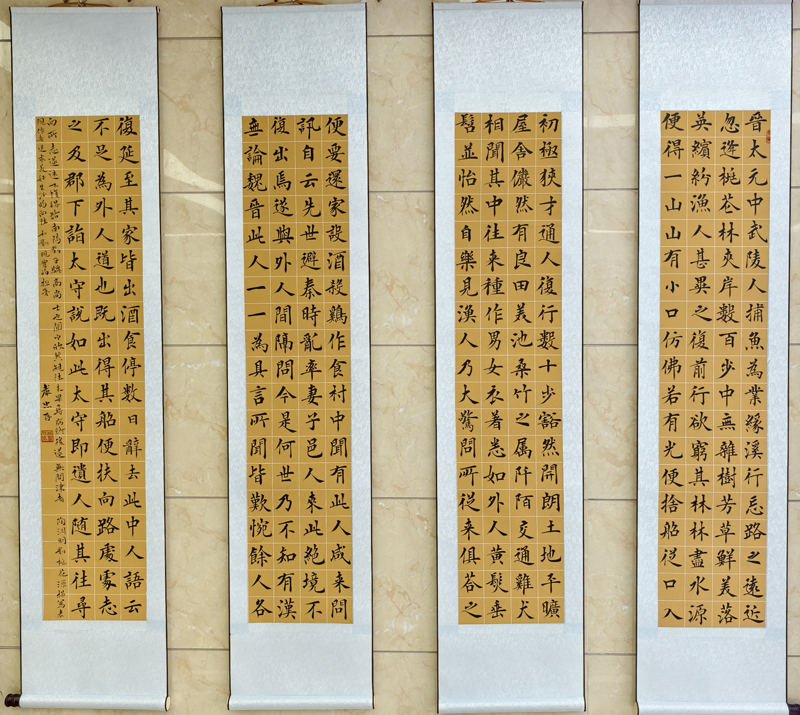 晉太元中武陵人捕魚為業緣溪行忘路之遠近
忽逢桃花林夾岸數百步中無雜樹芳草鮮美落
英繽紛漁人甚異之復前行欲窮其林林盡水源
便得一山山有小口仿佛若有光便捨船從口入
初極狹才通人復行數十步豁然開朗土地平曠
屋舍儼然有良田美池桑竹之属阡陌交通雞犬
相聞其中往来種作男女衣著悉如外人黃髮垂
髫並怡然自樂見漁人乃大驚問所從来俱答之
便要還家設酒殺鷄作食村中聞有此人咸来問
訊自云先世避秦時亂率妻子邑人来此絶境不
復出焉遂與外人間隔問今是何世乃不知有漢
無論魏晉此人一一為具言所聞皆歎惋餘人各
復延至其家皆出酒食停數日辭去此中人語云
不足為外人道也既出得其船便扶向路處處志
之及郡下詣太守說如此太守即遣人隨其往尋
向所志遂迷不復得路南陽劉子驥高尚士也聞之欣然規往未果尋病終後遂無問津者 陶淵明